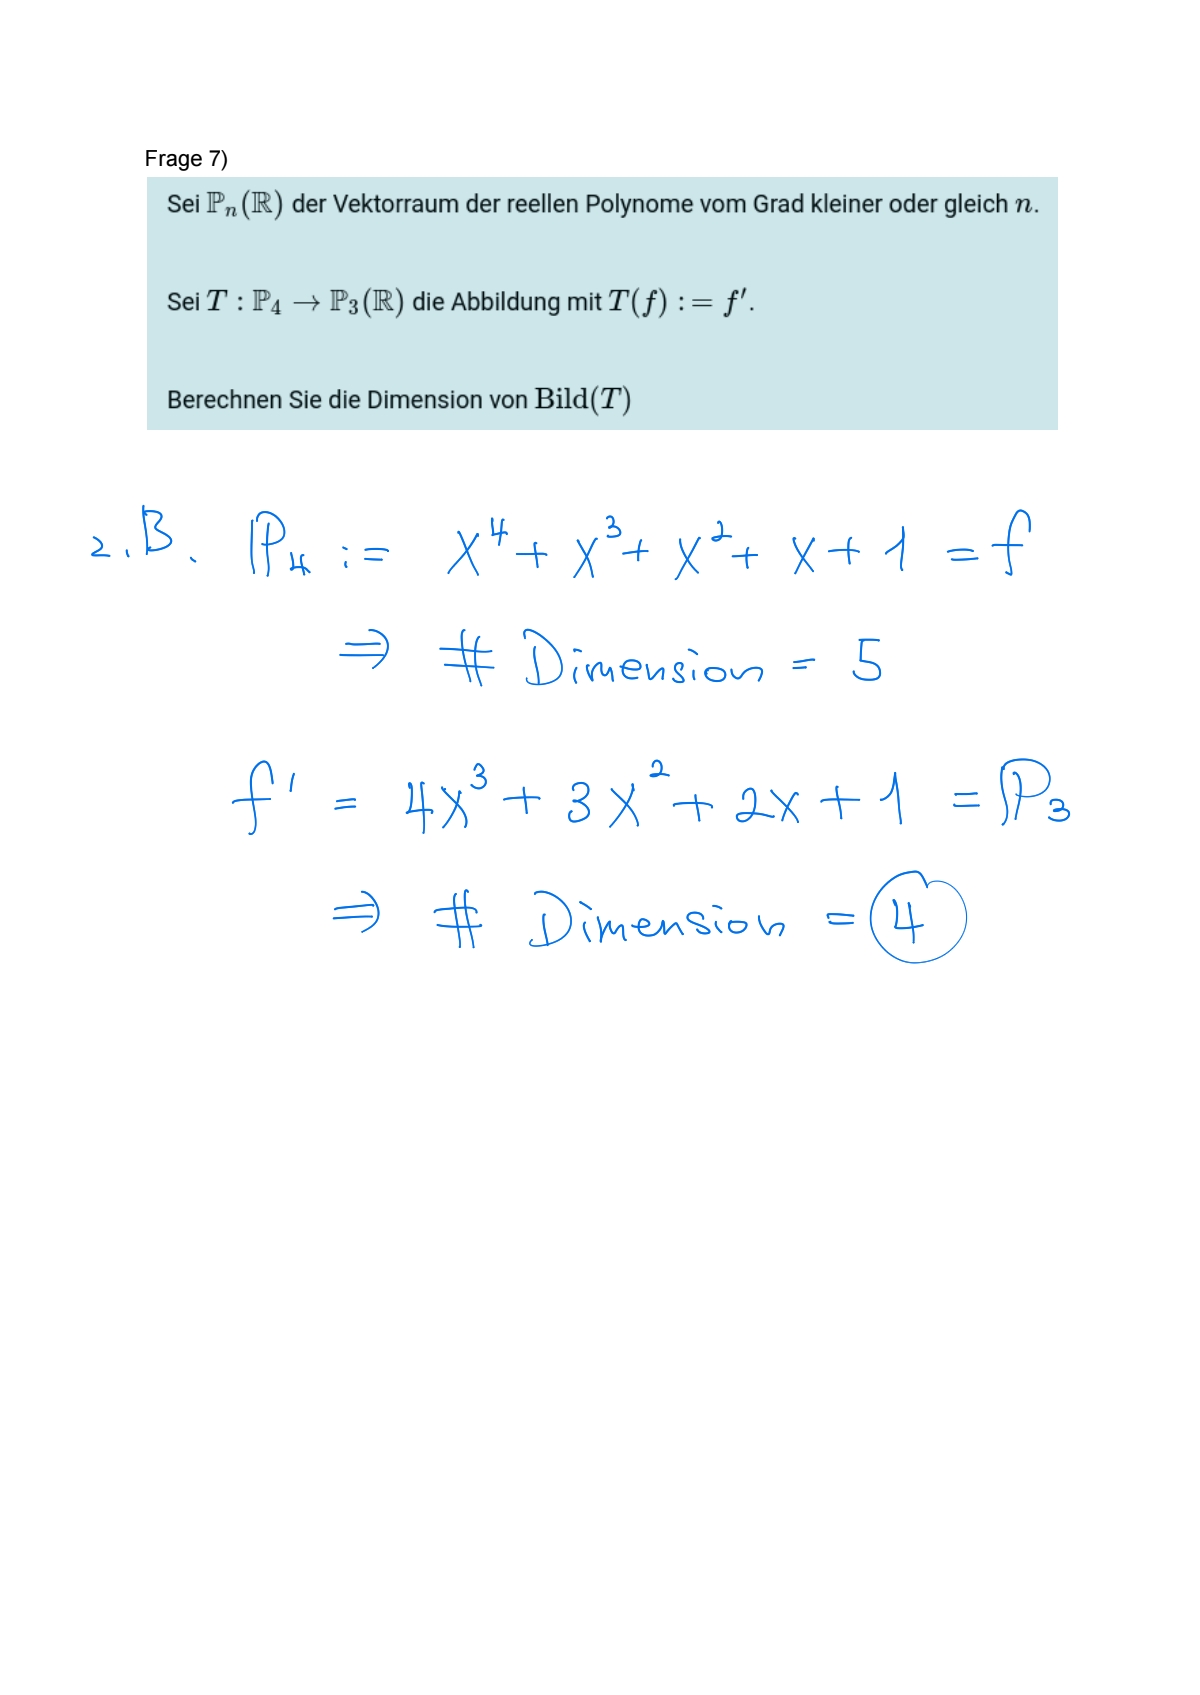 Frage 7)
Sei ℙₙ(ℝ) der Vektorraum der reellen Polynome vom Grad kleiner oder gleich n.
Sei T : ℙ₄ → ℙ₃(ℝ) die Abbildung mit T(f) := f′.
Berechnen Sie die Dimension von Bild(T)
z.B. ℙ₄ := x⁴ + x³ + x² + x + 1 = f
⇒ # Dimension = 5
f' = 4x³ + 3x² + 2x + 1 = ℙ₃
⇒ # Dimension = 4